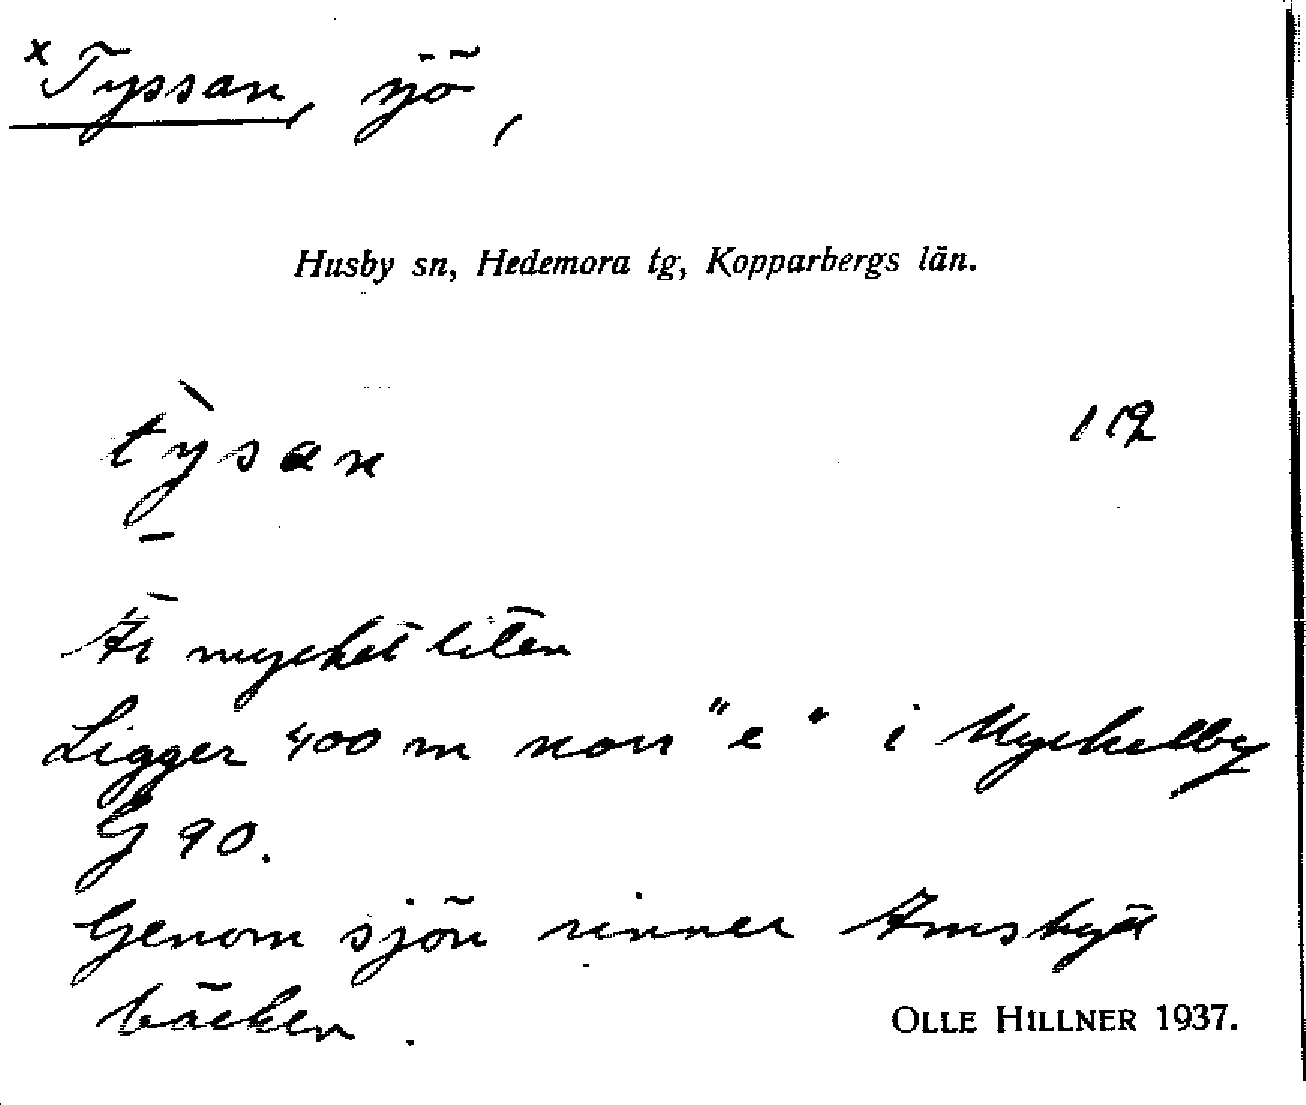 x Tyssan, sjö,
Husby sn, Hedemora tg, Kopparbergs län.
tỳsan 112
Är mycket liten
Ligger 400 m norr "e" i Myckelby
G 90.
Genom sjön rinner Amshytt
bäcken.
OLLE HILLNER 1937.